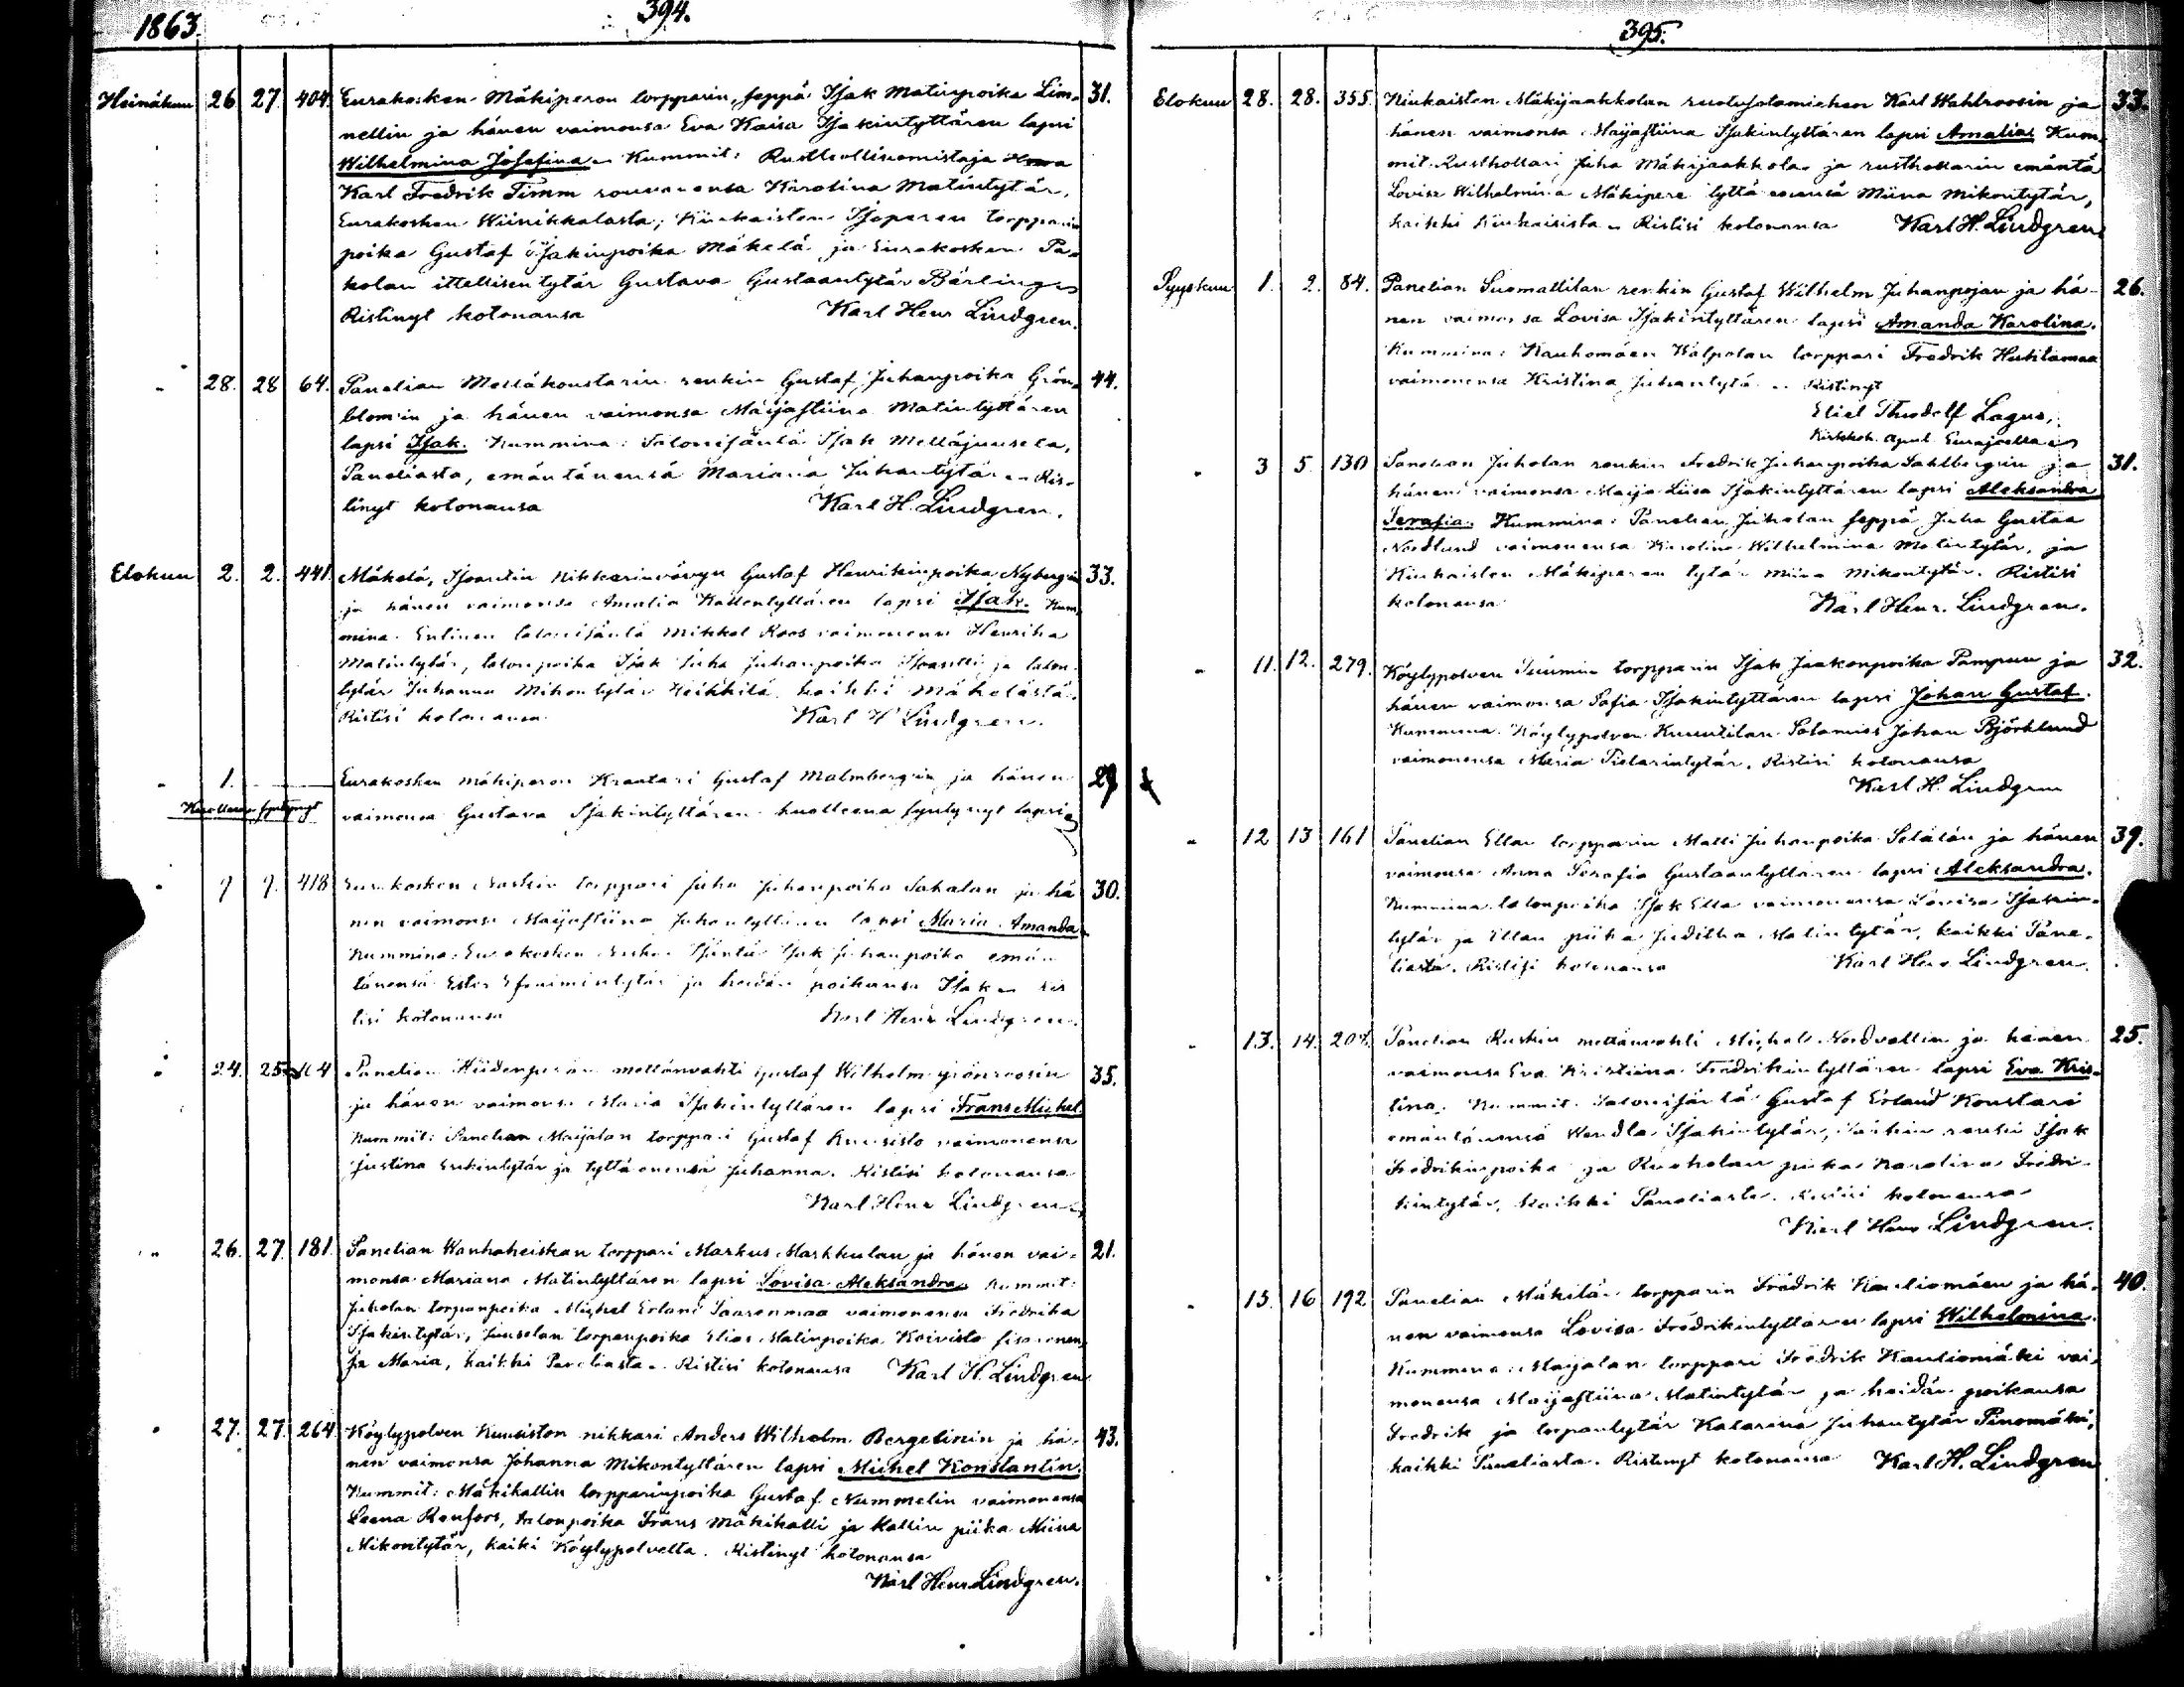 1863. 394.
Heinäkuu 26 27. 404. Eurakosken Mäkiperon torpparin, seppä Isak Matinpoika Lim- 31.
nellin ja hänen vaimonsa Eva Kaisa Isakintyttären lapsi
Wilhelmina Josefina. Kummit: Rusthollinomistaja Herra
Karl Fredrik Timm rouvanensa Karolina Matintytär,
Eurakosken Wiinikkalasta; Kiukaisten Isoperen torpparin
poika Gustaf Isakinpoika Mäkelä ja Eurakosken Pa-
kolan ittellisentytär Gustava Gustaantytär Bärling
Ristinyt kotonansa Karl Henr Lindgren.
28. 28 64. Panelian Melläkonstarin renkin Gustaf Juhanpoika Grön- 44.
blomin ja hänen vaimonsa Maijastiina Matintyttären
lapsi Isak. Kummina: Talonisäntä Isak Melläjuusela,
Paneliasta, emäntänensä Mariana Juhantytär. Ris-
tinyt kotonansa Karl H. Lindgren.
Elokuu 2. 2. 441. Mäkelä, Isoantin Nikkarinvävyn Gustaf Henrikinpoika Nybergin 33.
ja hänen vaimonsa Amalia Kallentyttären lapsi Isak. Kum-
mina. Entinen talonisäntä Mikkel Roos vaimonensa Henrika
Matintytär, talonpoika Isak Juha Juhanpoika Isoantti ja talon-
tytär Juhanna Mikontytär Heikkilä kaikki Mäkelästä.
Ristisi kotonansa Karl H Lindgren.
1. Eurakosken Mäkiperon Krantari Gustaf Malmbergin ja hänen 29
Kuolleena syntynyt vaimonsa Gustava Isakintyttären kuolleena syntynyt lapsi
7 7. 418 Eurakosken torppari Juha Juhanpoika Sahalan ja hä- 30.
nen vaimonsa Maijastiina Juhantyttären lapsi Maria Amanda.
Kummina: Eurakosken Isäntä Isak Juhanpoika emän-
tänensä Ester Efraimintytär ja heidän poikansa Isak. Ris
tisi kotonansa Karl Henr Lindgren.
24. 25 104 Panelian Hiidenperän mettänvahti Gustaf Wilhelm Grönroosin 35.
ja hänen vaimonsa Maria Isakintyttären lapsi Frans Michel.
Kummit: Panelian Maijalan torppari Gustaf Kuusisto vaimonensa
Justina Erikintytär ja tyttärenensä Juhanna. Ristisi kotonansa
Karl Henr Lindgren
26. 27. 181. Panelian Wanhaheiskan torppari Markus Markkulan ja hänen vai- 21.
monsa Mariana Matintyttären lapsi Lovisa Aleksandra. Kummit:
Juholan torpanpoika Michel Erland Saarenmaa vaimonensa Fredrika
Isakintytär, Juuselan torpanpoika Elias Matinpoika Koivisto sisarenen-
sa Maria, kaikki Paneliasta. Ristisi kotonansa Karl H. Lindgren
27. 27. 264 Köylypolven Kuusiston nikkari Anders Wilhelm Bergelinin ja hä- 43.
nen vaimonsa Johanna Mikontyttären lapsi Michel Konstantin.
Kummit: Mäkikallin torpparinpoika Gustaf Nummelin vaimonensa
Leena Renfors, talonpoika Frans Mäkikalli ja Kallin piika Miina
Mikontytär, kaiki Köylypolvelta. Ristinyt kotonansa
Karl Henr Lindgren.
395.
Elokuu 28. 28. 355. Kiukaisten Mäkijaakkolan ruotusotamiehen Karl Wahlroosin ja 33.
hänen vaimonsa Maijastiina Isakintyttären lapsi Amalia. Kum-
mit. Rusthollari Juha Mäkijaakkola ja rusthollarin emäntä
Lovisa Wilhelmina Mäkipere tyttärenensä Miina Mikontytär,
kaikki Kiukaisista. Ristisi kotonansa Karl H. Lindgren
Syyskuu 1. 2. 84. Panelian Suomallilan renkin Gustaf Wilhelm Juhanpojan ja hä- 26.
nen vaimonsa Lovisa Isakintyttären lapsi Amanda Karolina.
Kummina: Kauhomäen Walpolan torppari Fredrik Huhtamaa
vaimonensa Kristina Juhantytär. Ristinyt
Eliel Thudolf Lagus,
Kirkkoh. Apul. Eurajoella
3 5. 130 Panelian Juholan renkin Fredrik Juhanpoika Sahlbergin ja 31.
hänen vaimonsa Maija Liisa Isakintyttären lapsi Aleksandra
Serafia. Kummina: Panelian Juholan seppä Juha Gustaa
Nordlund vaimonensa Karolina Wilhelmina Matintytär, ja
Kiukaisten Mäkiperen tytär Miina Mikontytär. Ristisi
kotonansa Karl Henr. Lindgren.
11. 12. 279. Köylypolven Tuimin torpparin Isak Jaakonpoika Pampun ja 32.
hänen vaimonsa Sofia Isakintyttären lapsi Johan Gustaf.
Kummina. Köylypolven Knuutilan Sotamies Johan Björklund
vaimonensa Maria Tielarintytär. Ristisi kotonansa
Karl H. Lindgren
12 13 161 Panelian Ellan torpparin Matti Juhanpoika Selälän ja hänen 39.
vaimonsa Anna Serafia Gustaantyttären lapsi Aleksandra.
Kummina talonpoika Isak Ella vaimonensa Lovisa Isakin-
tytär ja Ellan piika Juditha Matintytär, kaikki Pane-
liasta. Ristisi kotonansa Karl Henr Lindgren.
13. 14. 207. Panelian Ruskin mettänvahti Michel Nordvallin ja hänen 25.
vaimonsa Eva Kristiina Fredrikintyttären lapsi Eva Kris-
tina. Kummit. Talonisäntä Gustaf Erland Konstari
emäntänensä Wendla Isakintytär, renki Isak
Fredrikinpoika ja Ruoholan piika Karolina Fredri-
kintytär, kaikki Paneliasta. Ristisi kotonansa
Karl Henr Lindgren.
15. 16 192 Panelian Mäkilän torpparin Fredrik Kauliomäen ja hä- 40.
nen vaimonsa Lovisa Fredrikintyttären lapsi Wilhelmina.
Kummina: Maijalan torppari Fredrik Kauliomäki vai-
monensa Maijastiina Matintytär ja heidän poikansa
Fredrik ja torpantytär Katarina Juhantytär Pinomäki,
kaikki Paneliasta. Ristinyt kotonansa Karl H. Lindgren